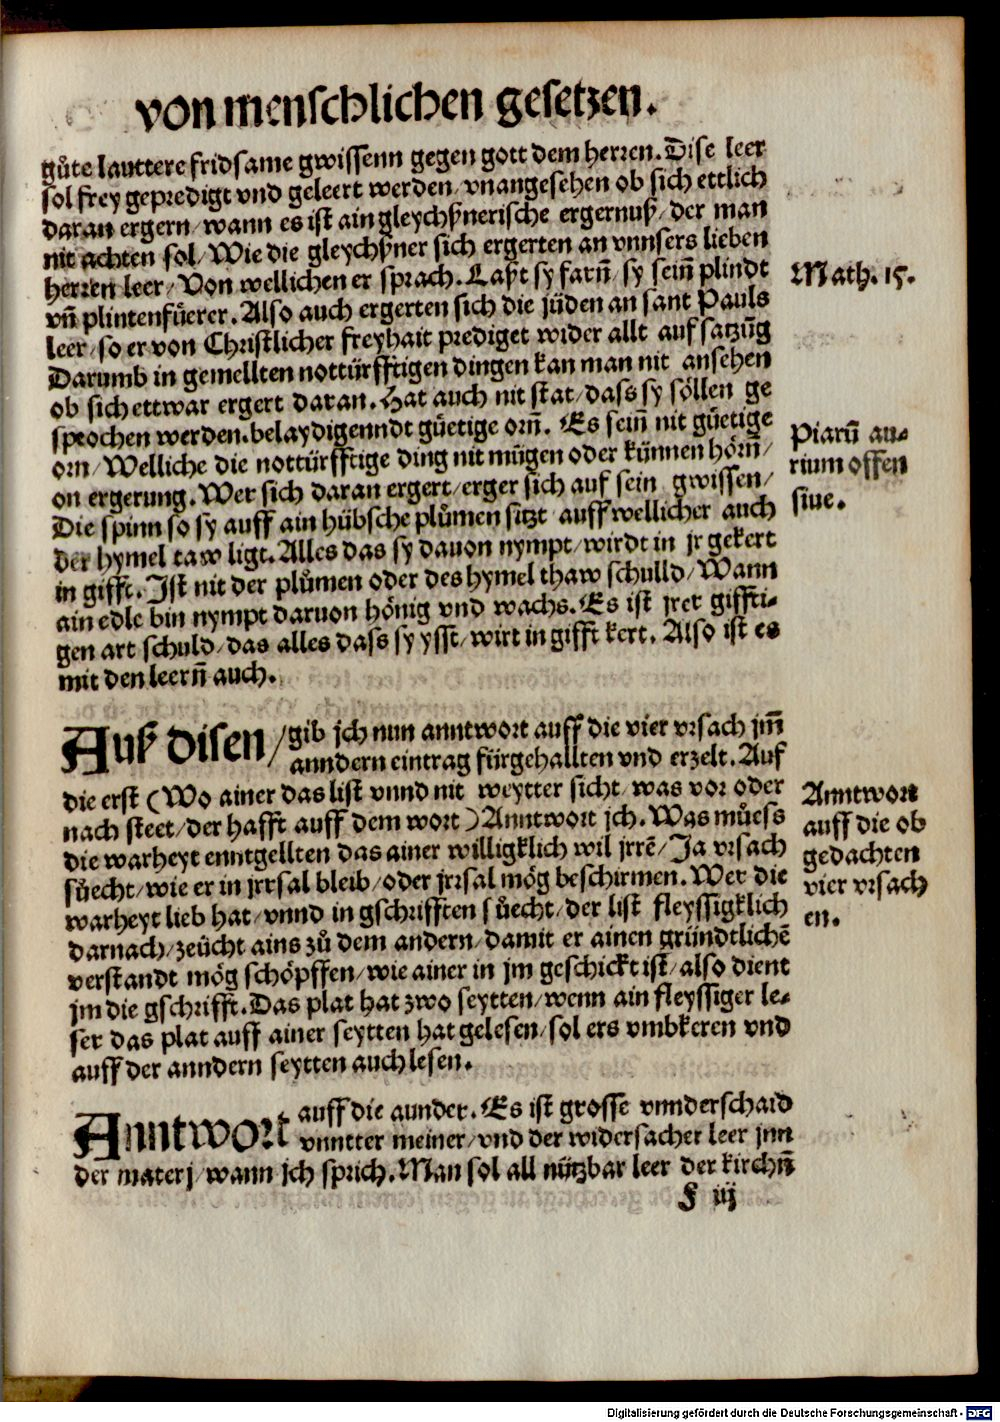 von menschlichen gesetzen.
gůte lauttere fridsame gwissenn gegen gott dem herren. Dise leer
sol frey gepredigt vnd geleert werden/ vnangesehen ob sich ettlich
daran ergern/ wann es ist ain gleychßnerische ergernuß/ der man
nit achten sol/ Wie die gleychßner sich ergerten an vnnsers lieben
herren leer/ Von wellichen er sprach. Laßt sy farñ/ sy seiñ plindt
vñ plintenfüerer. Also auch ergerten sich die jüden an sant Pauls
leer/ so er von Christlicher freyhait prediget wider allt auf satzũg
Darumb in gemellten nottürfftigen dingen kan man nit ansehen
ob sich ettwar ergert daran. Hat auch nit stat/ dass sy söllen ge
sprochen werden. belaydigenndt güetige orñ. Es seiñ nit güetige
orn/ Welliche die nottürfftige ding nit mügen oder künnen hörñ/
on ergerung. Wer sich daran ergert/ erger sich auf sein gwissen/
Die spinn so sy auff ain hübsche plůmen sitzt auff wellicher auch
der hymel taw ligt. Alles das sy dauon nympt/ wirdt in jr gekert
in gifft. Ist nit der plůmen oder des hymel thaw schulld/ Wann
ain edle bin nympt daruon hönig vnd wachs. Es ist jrer giffti-
gen art schuld/ das alles dass sy ysst/ wirt in gifft kert. Also ist es
mit den leerñ auch.
Math. 15.
Piarũ au-
rium offen
siue.
Auß disen/ gib jch nun anntwort auff die vier vrsach jm̃
anndern eintrag fürgehallten vnd erzelt. Auf
die erst (Wo ainer das list vnnd nit weytter sicht/ was vor oder
nach steet/ der hafft auff dem wort) Anntwort jch. Was můess
die warheyt enntgellten das ainer willigklich wil jrrẽ/ Ja vrsach
sůecht/ wie er in jrrsal bleib/ oder jrrsal mög beschirmen. Wer die
warheyt lieb hat/ vnnd in gschrifften sůecht/ der list fleyssigklich
darnach/ zeücht ains zů dem andern/ damit er ainen gründtlichẽ
verstandt mög schöpffen/ wie ainer in jm geschickt ist/ also dient
jm die gschrifft. Das plat hat zwo seytten/ wenn ain fleyssiger le-
ser das plat auff ainer seytten hat gelesen/ sol ers vmbkeren vnd
auff der anndern seytten auch lesen.
Anntwort
auff die ob
gedachten
vier vrsach
en.
Anntwort auff die annder. Es ist grosse vnnderschaid
vnntter meiner/ vnd der widersacher leer jnn
der materj/ wann jch sprich. Man sol all nützbar leer der kirchñ
F iij
Digitalisierung gefördert durch die Deutsche Forschungsgemeinschaft - DFG